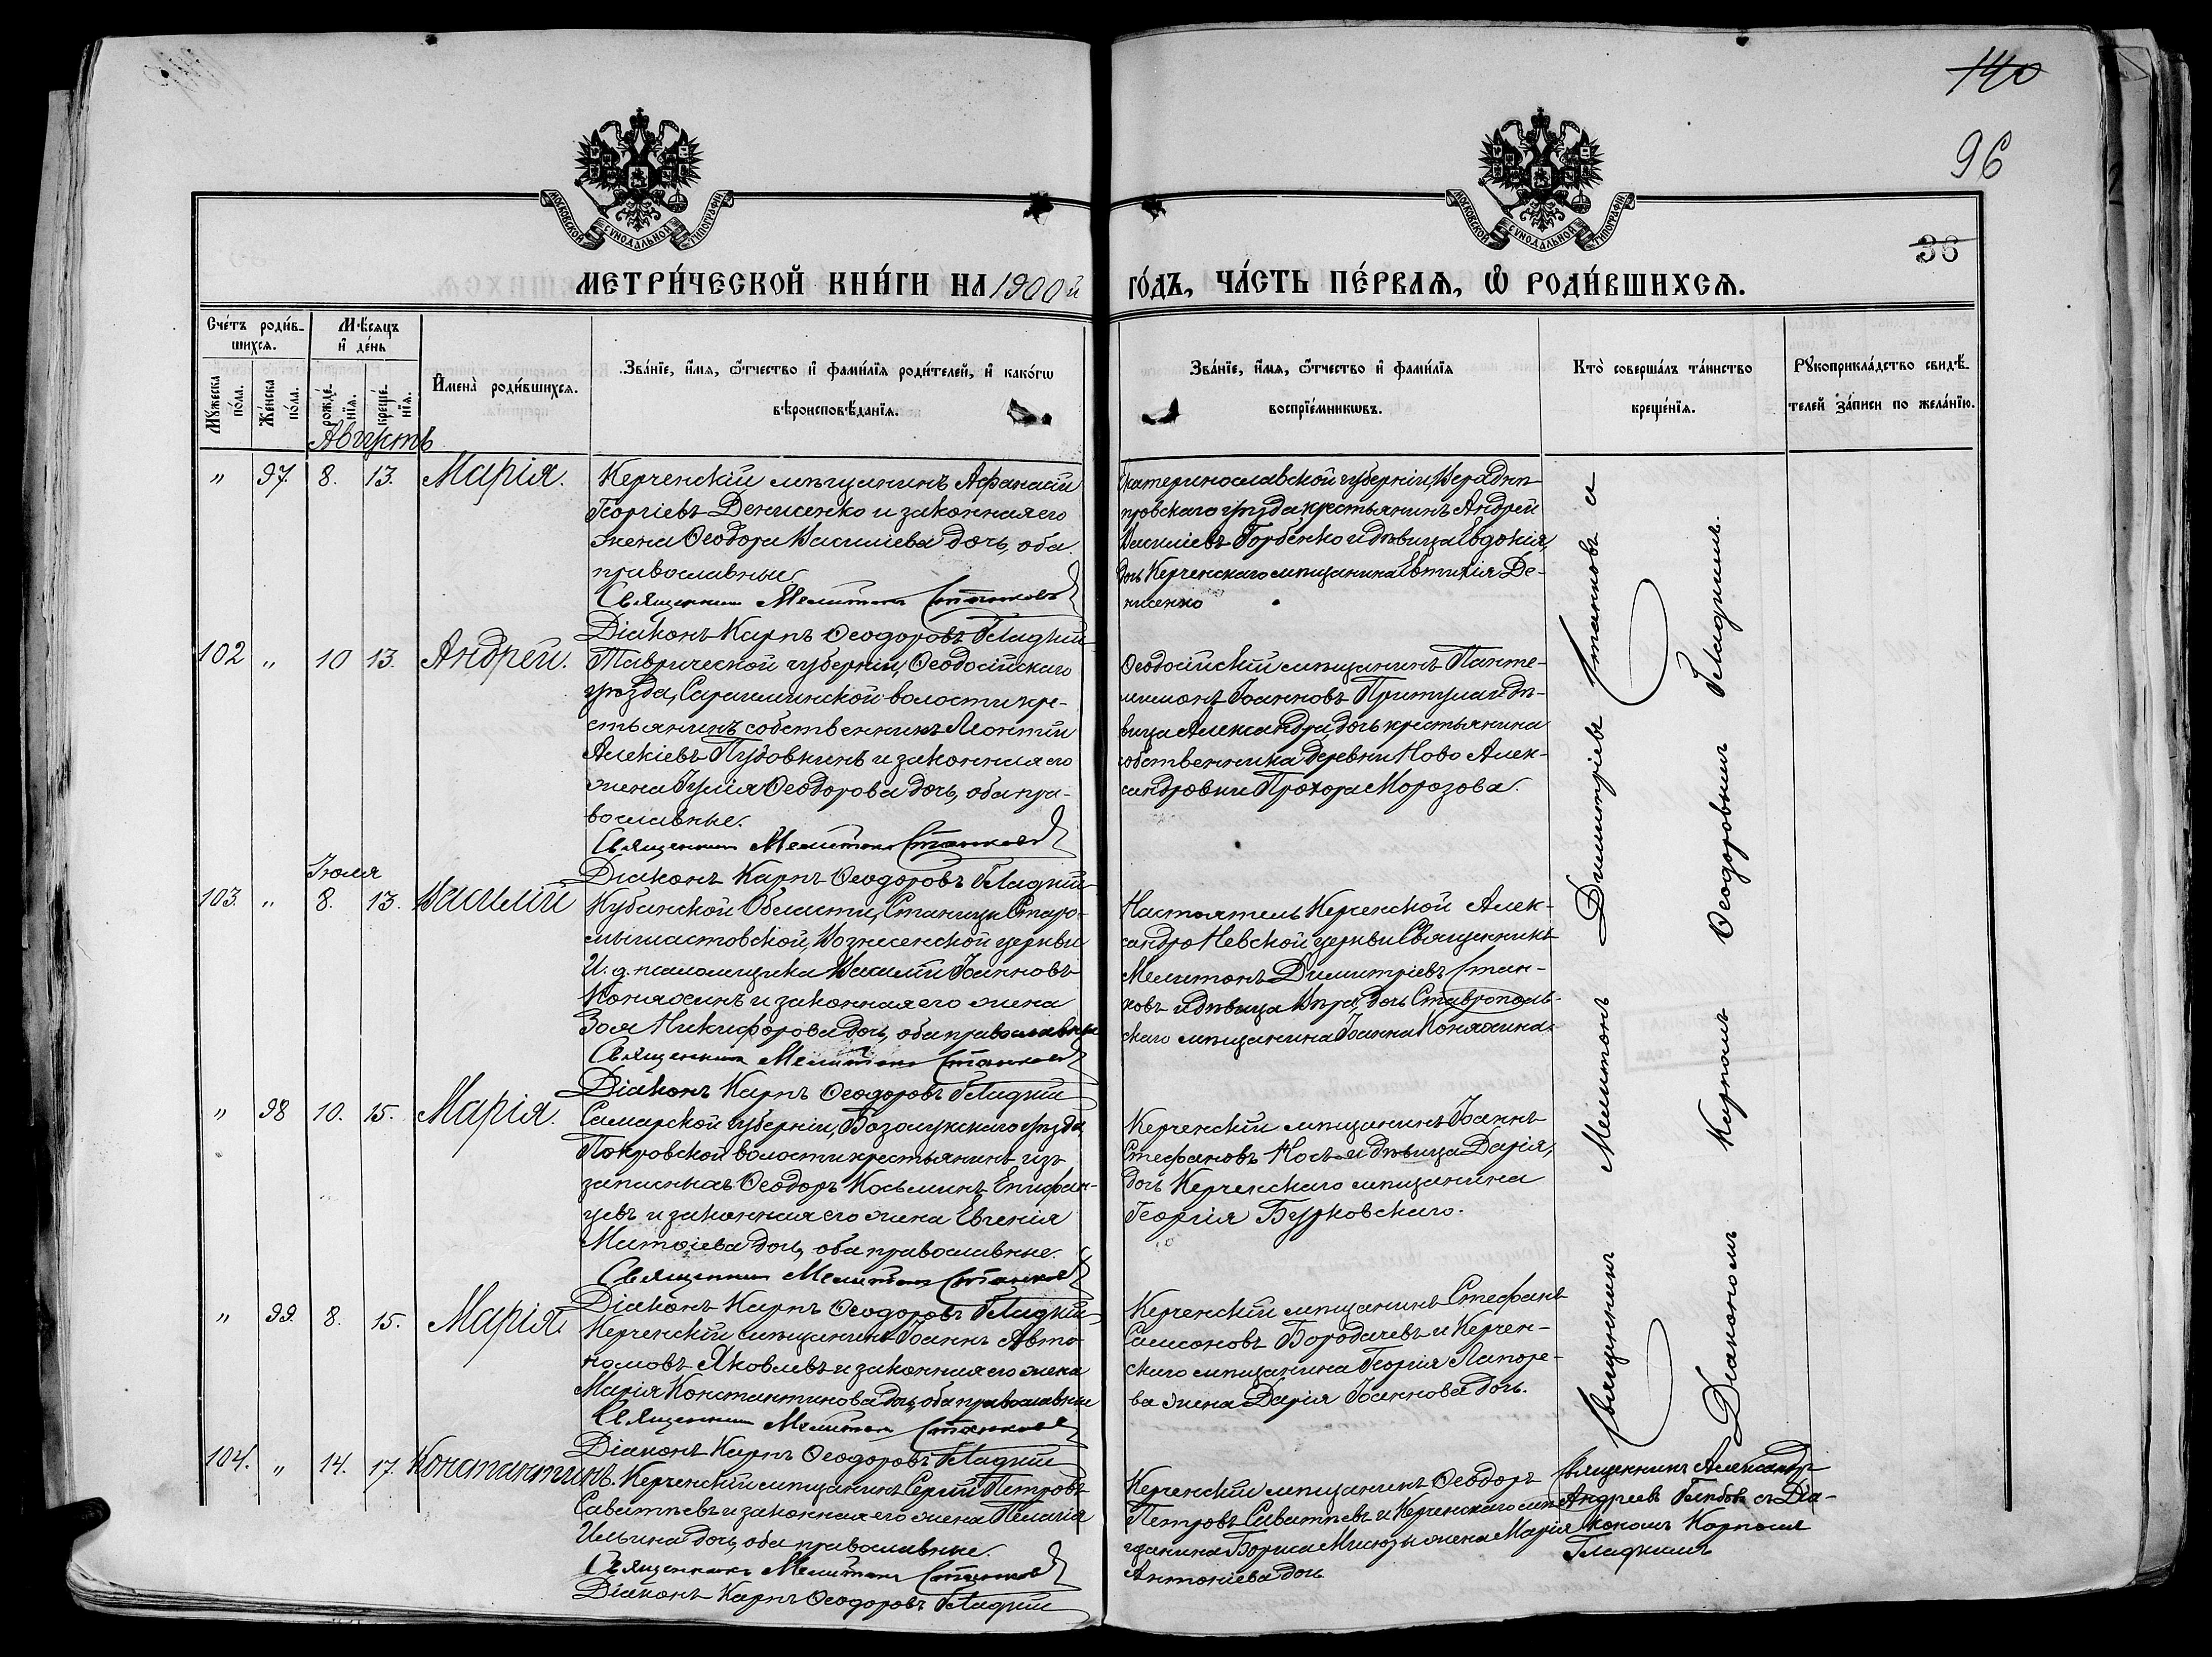 140
96
36
МОСКОВСКОЙ СУНОДАЛЬНОЙ ТИПОГРАФІИ
МОСКОВСКОЙ СУНОДАЛЬНОЙ ТИПОГРАФІИ
МЕТРИ́ЧЕСКОЙ КНИ́ГИ НА 1900й
ГО́ДЪ, ЧА́СТЬ ПЕ́РВАѦ, Ѡ҆ РОДИ́ВШИХСѦ.
Сче́тъ роди́в-
шихсѧ.
Мѣ́сѧцъ
и҆ де́нь
Мꙋ́жеска по́ла.
Же́нска по́ла.
рожде́-
нїѧ.
креще́-
нїѧ.
И҆мена̀ роди́вшихсѧ.
Зва́нїе, и҆́мѧ, ѻ҆́тчество и҆ фами́лїѧ роди́телей, и҆ како́гѡ
вѣроисповѣ́данїѧ.
Зва́нїе, и҆́мѧ, ѻ҆́тчество и҆ фами́лїѧ
воспрїе́мникѡвъ.
Кто̀ соверша́лъ та́инство
креще́нїѧ.
Рꙋкоприкла́дство свидѣ́-
телей за́писи по жела́нїю.
Августъ
" 97. 8. 13. Марія.
Керченскій мѣщанинъ Афанасій
Георгіевъ Денисенко и законная его
жена Ѳеодора Василіева дочь, оба
православные
Священникъ Мелитонъ Станковъ
Діаконъ Карпъ Ѳеодоровъ Гладкій
Екатеринославской губерніи, Верхднѣ-
провскаго уѣзда крестьянинъ Андрей
Василіевъ Горбенко и дѣвица Евдокія,
дочь Керченскаго мѣщанина Евтихія Де-
нисенко
102 " 10 13. Андрей.
Таврической губерніи, Ѳеодосійскаго
уѣзда, Сарайминской волости кре-
стьянинъ собственникъ Леонтій
Алекіевъ Пудовкинъ и законная его
жена Іулія Ѳеодорова дочь, оба пра-
вославные.
Священникъ Мелитонъ Станковъ
Діаконъ Карпъ Ѳеодоровъ Гладкій
Ѳеодосійскій мѣщанинъ Панте-
лимонъ Іоанновъ Притула и дѣ-
вица Александра, дочь крестьянина
собственника деревни Ново Алек-
сандровки Прохора Морозова.
Іюля
103. " 8. 13. Василій
Кубанской Области, Станицы Старо-
мышастовской, Вознесенской церкви
И. д. псаломщика Василій Іоанновъ
Коняхинъ и законная его жена
Зоя Никифорова дочь, оба православные
Священникъ Мелитонъ Станковъ
Діаконъ Карпъ Ѳеодоровъ Гладкій
Настоятель Керченской Алек-
сандро Невской церкви Священникъ
Мелитонъ Димитріевъ Стан-
ковъ и дѣвица Вѣра, дочь Ставрополь-
скаго мѣщанина Іоанна Коняхина.
" 98 10. 15. Марія.
Самарской губерніи, Бузолукскаго уѣзда
Покровской волости крестьянинъ изъ
запасныхъ Ѳеодоръ Косьминъ Епифан-
цевъ и законная его жена Евгенія
дочь, оба православные.
Священникъ Мелитонъ Станковъ
Діаконъ Карпъ Ѳеодоровъ Гладкій
Керченскій мѣщанинъ Іоаннъ
Стефановъ Носъ и дѣвица Дарія,
дочь Керченскаго мѣщанина
Георгія Бурковскаго.
" 99. 8. 15. Марія.
Керченскій мѣщанинъ Іоаннъ Авто-
номовъ Яковлевъ и законная его жена
Марія Константинова дочь, оба православные
Священникъ Мелитонъ Станковъ
Діаконъ Карпъ Ѳеодоровъ Гладкій
Керченскій мѣщанинъ Стефанъ
Самсоновъ Бородачевъ и Керчен-
скаго мѣщанина Георгія Лапоре-
ва жена Дарія Іоаннова дочь.
104. " 14. 17. Константинъ.
Керченскій мѣщанинъ Сергій Петровъ
Саватѣевъ и законная его жена Пелагія
Ильина дочь, оба православные.
Священникъ Мелитонъ Станковъ
Діаконъ Карпъ Ѳеодоровъ Гладкій
Керченскій мѣщанинъ Ѳеодоръ
Петровъ Саватѣевъ и Керченскаго мѣ-
щанина Бориса Мисюзы жена Марія
Антоніева дочь
Священникъ Мелитонъ Димитріевъ Станковъ съ
Діакономъ Карпомъ Ѳеодоровымъ Гладкимъ.
Священникъ Александръ
Андреевъ Глѣбовъ съ Діа-
кономъ Карпомъ
Гладкимъ